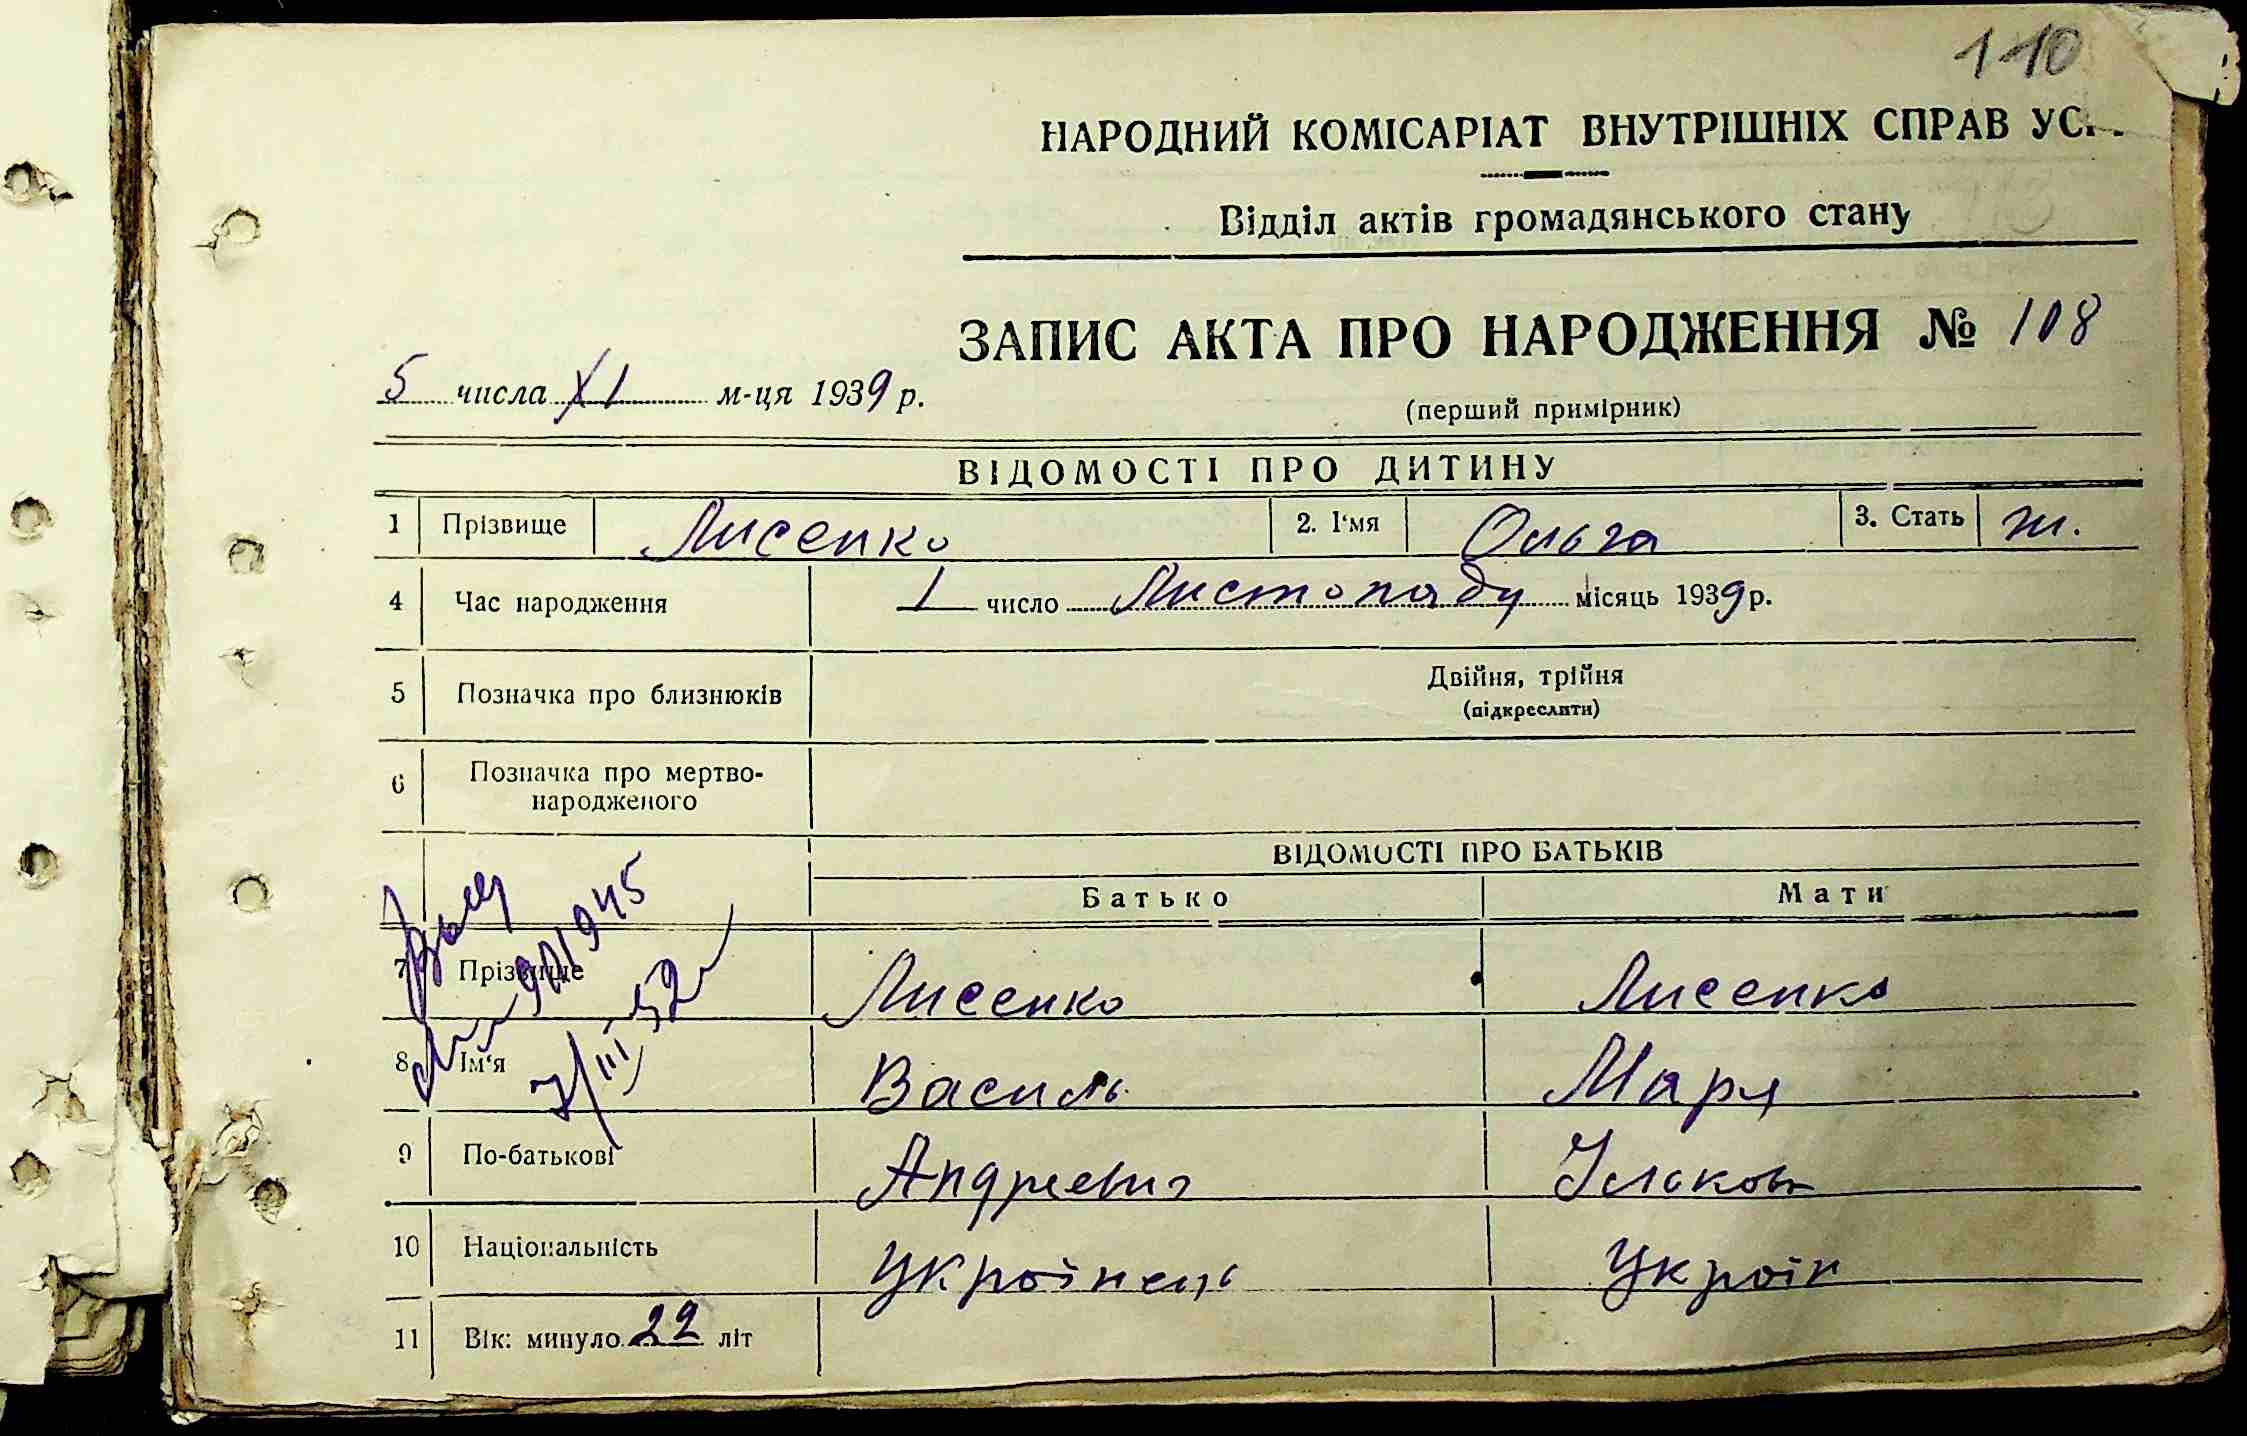 110
НАРОДНИЙ КОМІСАРІАТ ВНУТРІШНІХ СПРАВ
Відділ актів громадянського стану
ЗАПИС АКТА ПРО НАРОДЖЕННЯ № 108
5 числа XI м-ця 1939 р.
(перший примірник)
ВІДОМОСТІ ПРО ДИТИНУ
1 Прізвище Лисенко 2. І'мя Ольга 3. Стать ж.
4 Час народження 1 число Листопаду місяць 1939 р.
5 Позначка про близнюків Двійня, трійня
(підкреслити)
6 Позначка про мертво-
народженого
ВІДОМОСТІ ПРО БАТЬКІВ
Батько Мати
7 Прізвище Лисенко Лисенко
8 Ім'я Василь Маря
9 По-батькові Андреевич
10 Національність Українець Україн
11 Вік: минуло 22 літ
7/III 52